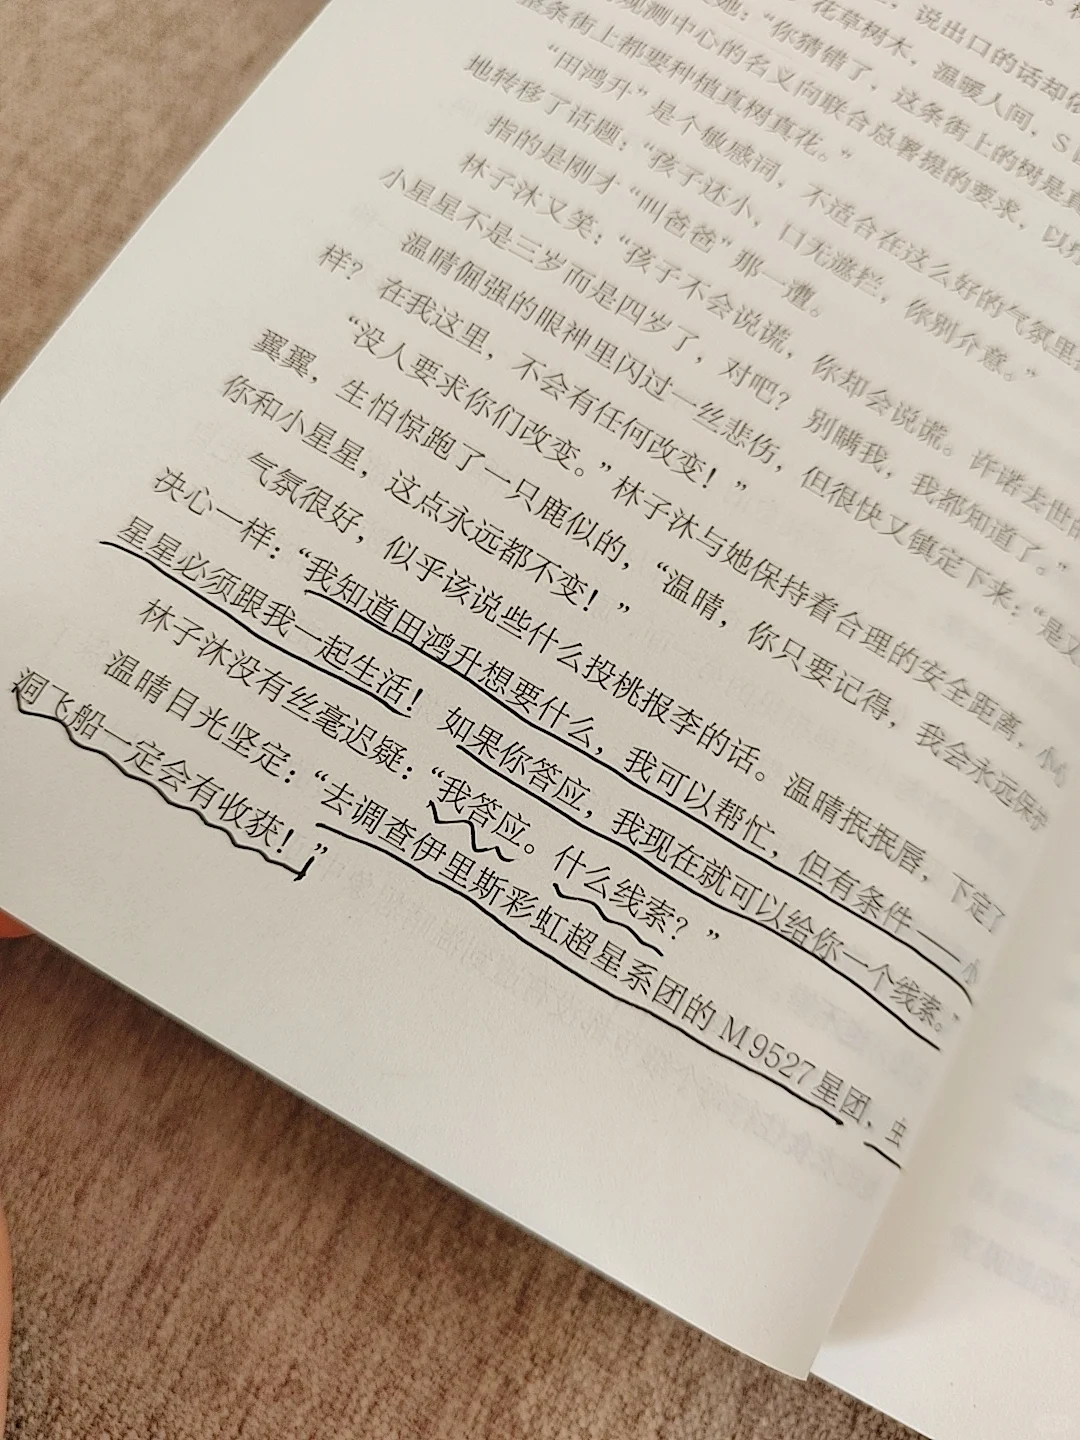 ，说出口的话却依
她：“你猜错了，这条街上的树是真
花草树木，温暖人间，S
观测中心的名义向联合总署提的要求，以
整条街上都要种植真树真花。”
“田鸿升”是个敏感词，不适合在这么好的气氛里
地转移了话题：“孩子还小，口无遮拦，你别介意。”
指的是刚才“叫爸爸”那一遭。
林子沐又笑：“孩子不会说谎，你却会说谎。许诺去世的
小星星不是三岁而是四岁了，对吧？别瞒我，我都知道了。”
温晴倔强的眼神里闪过一丝悲伤，但很快又镇定下来：“是又
样？在我这里，不会有任何改变！”
“没人要求你们改变。”林子沐与她保持着合理的安全距离，小心
翼翼，生怕惊跑了一只鹿似的，“温晴，你只要记得，我会永远保护
你和小星星，这点永远都不变！”
气氛很好，似乎该说些什么投桃报李的话。温晴抿抿唇，下定了
决心一样：“我知道田鸿升想要什么，我可以帮忙，但有条件——小
星星必须跟我一起生活！如果你答应，我现在就可以给你一个线索。”
林子沐没有丝毫迟疑：“我答应。什么线索？”
温晴目光坚定：“去调查伊里斯彩虹超星系团的M9527星团，虫
洞飞船一定会有收获！”